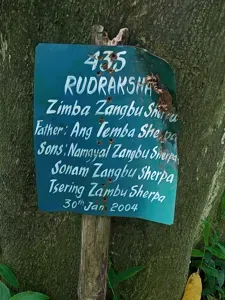 435
RUDRAKSHA
Zimba Zangbu Sherpa
Father: Ang Temba Sherpa
Sons: Namgyal Zangbu Sherpa
Sonam Zangbu Sherpa
Tsering Zambu Sherpa
30th Jan 2004